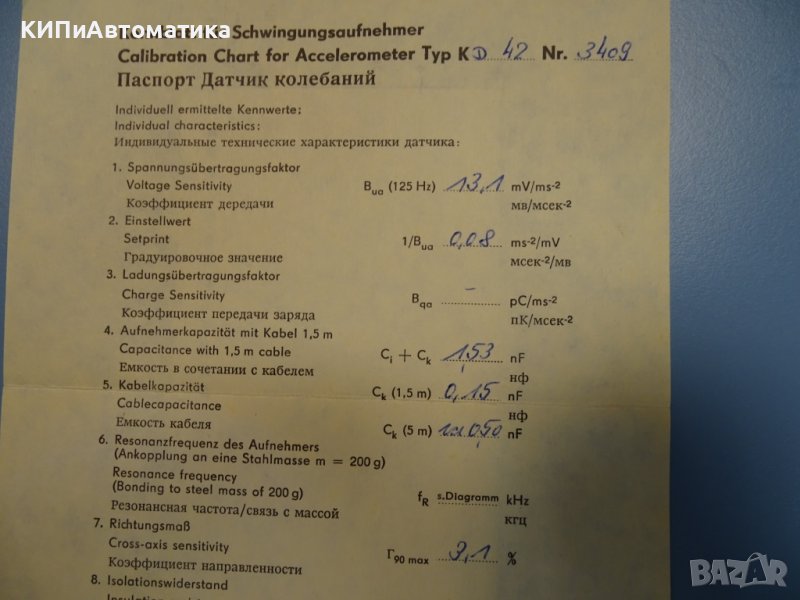 КИПиАвтоматика
Schwingungsaufnehmer
Calibration Chart for Accelerometer Typ KD 42 Nr. 3409
Паспорт Датчик колебаний
Individuell ermittelte Kennwerte:
Individual characteristics:
Индивидуальные технические характеристики датчика:
1. Spannungsübertragungsfaktor
Voltage Sensitivity Bua (125 Hz) 13,1 mV/ms-2
Коэффициент дередачи мв/мсек-2
2. Einstellwert
Setprint 1/Bua 0,08 ms-2/mV
Градуировочное значение мсек-2/мв
3. Ladungsübertragungsfaktor
Charge Sensitivity Bqa – pC/ms-2
Коэффициент передачи заряда пК/мсек-2
4. Aufnehmerkapazität mit Kabel 1,5 m
Capacitance with 1,5 m cable Ci + Ck 1,53 nF
Емкость в сочетании с кабелем нф
5. Kabelkapazität Ck (1,5 m) 0,15 nF
Cablecapacitance нф
Емкость кабеля Ck (5 m) 0,50 nF
6. Resonanzfrequenz des Aufnehmers
(Ankopplung an eine Stahlmasse m = 200 g)
Resonance frequency
(Bonding to steel mass of 200 g) fR s.Diagramm kHz
Резонансная частота/связь с массой кгц
7. Richtungsmaß
Cross-axis sensitivity Γ90 max 3,1 %
Коэффициент направленности
8. Isolationswiderstand
BAZAR